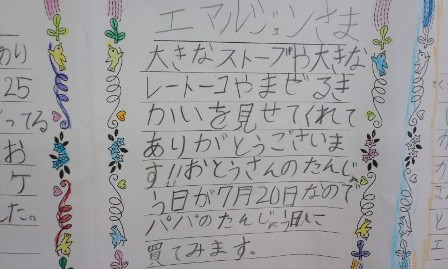 あり
25
ってる
お
ケ
た。
エマルジョンさま
大きなストーブや大きな
レートーコやまぜるき
かいを見せてくれて
ありがとうございま
す!!おとうさんのたんじ
う日が7月20日なので
パパのたんじょう日に
買てみます。